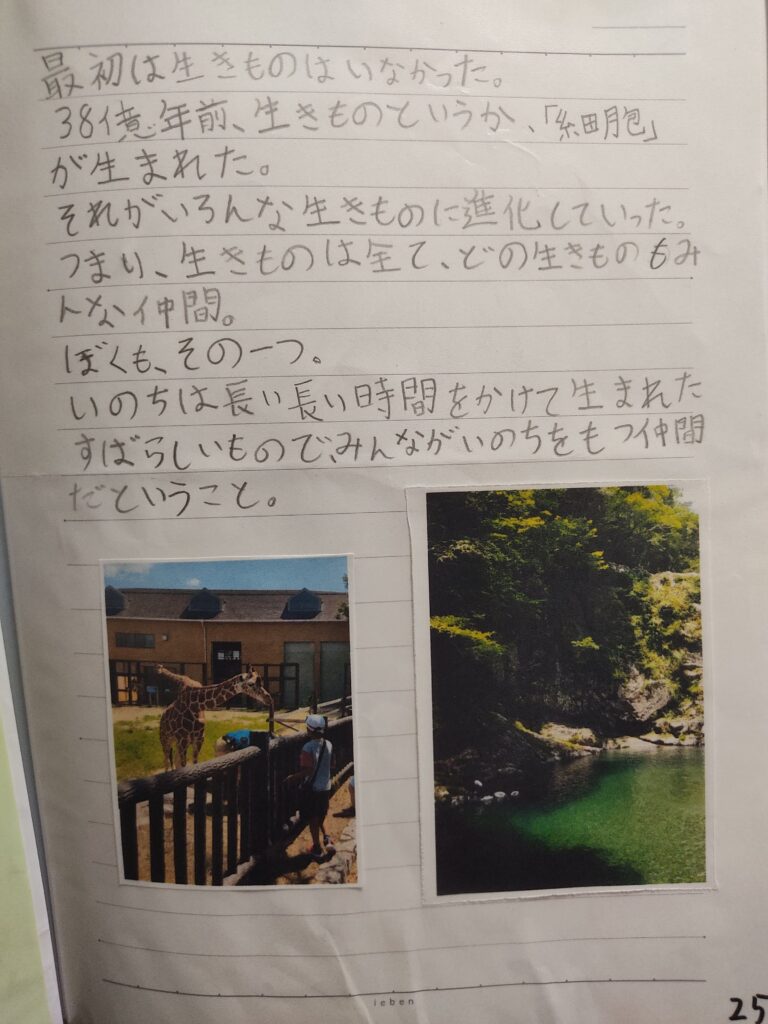 最初は生きものはいなかった。
38億年前、生きものというか、「細胞」
が生まれた。
それがいろんな生きものに進化していった。
つまり、生きものは全て、どの生きものもみ
んな仲間。
ぼくも、その一つ。
いのちは長い長い時間をかけて生まれた
すばらしいもので、みんながいのちをもつ仲間
だということ。
ieben
25